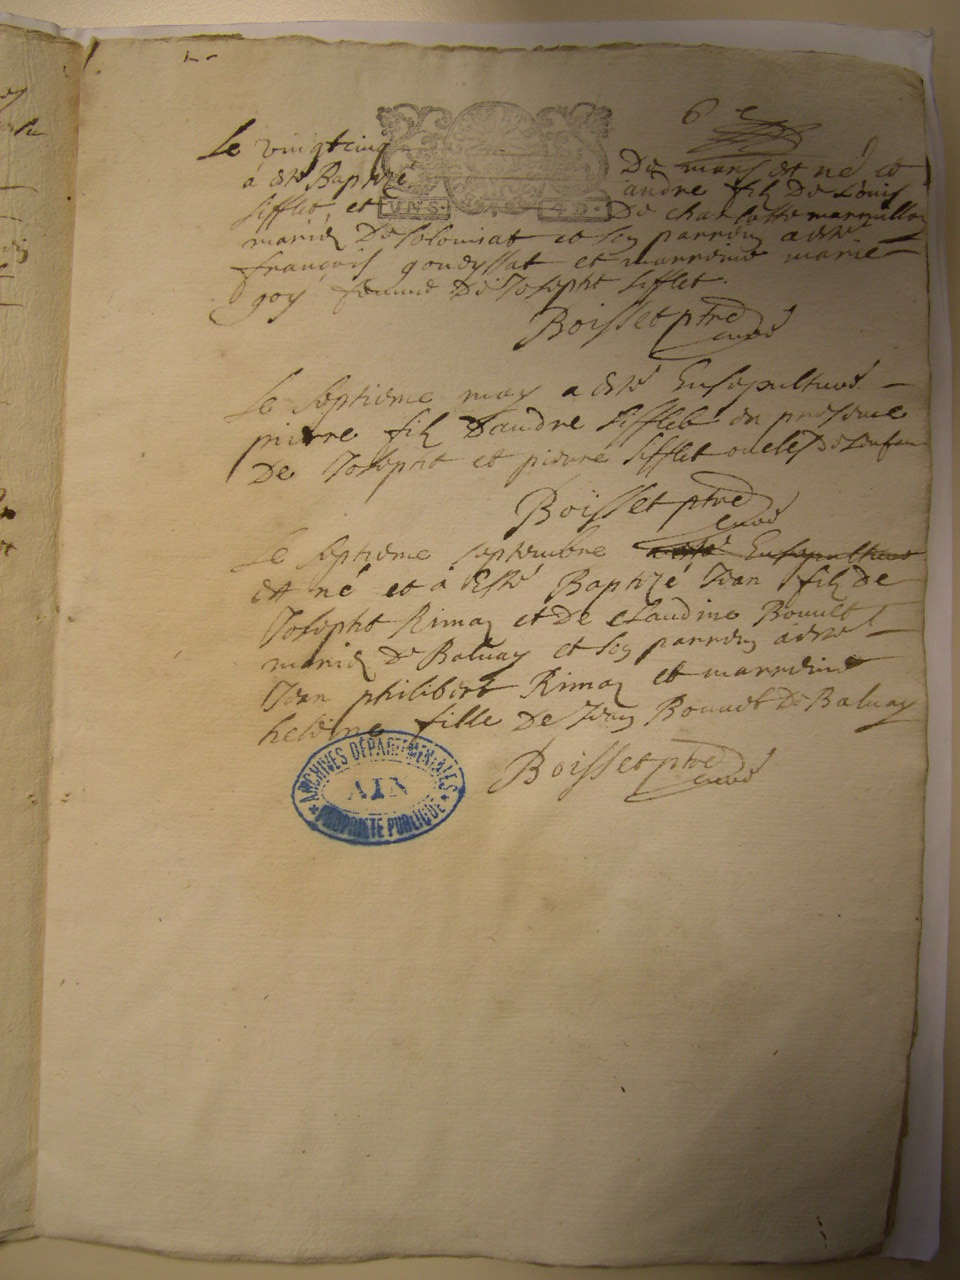 6e
Le vingtcinq De mars est né et
a esté Baptizé andre filz De Louis
sifflet et De charlotte marmillon
mariez De Solomiat et son parrein a esté
françois goudyssat et marreine marie
goy femme De Joseph sifflet.
Boisset ptre
curé
VN·S· 4·D·
Le septieme may a esté Ensepulturé
pierre filz D'andre sifflet en presence
De Joseph et pierre sifflet oncles De L'enfan
Boisset ptre
curé
Le septieme septembre a esté Ensepulturé
est né et a Esté Baptizé Jean filz de
Joseph Rimoz et De claudine Bouvet
mariez De Balvay et son parrein a esté
Jean philibert Rimoz et marreine
heleine fille De Jean Bouvet De Balvay
Boisset ptre
curé
ARCHIVES DÉPARTEMENTALES
AIN
PROPRIÉTÉ PUBLIQUE